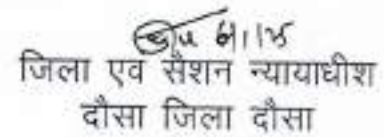 6/1/25
जिला एव सैशन न्यायाधीश
दौसा जिला दौसा